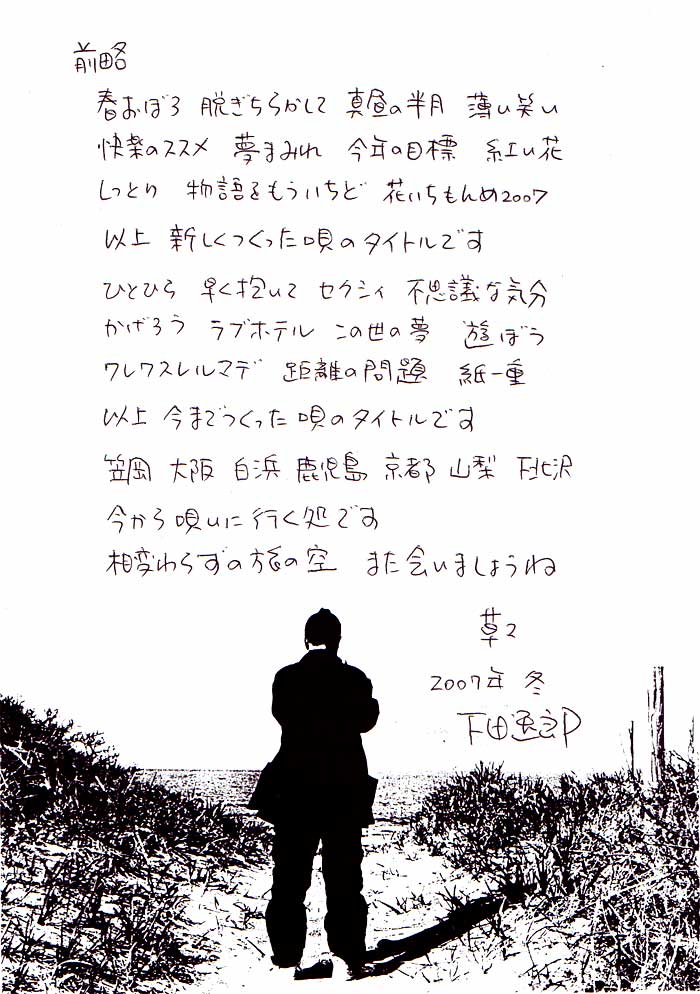 前略
春おぼろ 脱ぎちらかして 真昼の半月 薄い笑い
快楽のススメ 夢まみれ 今年の目標 紅い花
しっとり 物語をもういちど 花いちもんめ2007
以上 新しくつくった唄のタイトルです
ひとひら 早く抱いて セクシィ 不思議な気分
かげろう ラブホテル この世の夢 遊ぼう
ワレワスレルマデ 距離の問題 紙一重
以上 今までつくった唄のタイトルです
笠岡 大阪 白浜 鹿児島 京都 山梨 下北沢
今から唄いに行く処です
相変わらずの旅の空 また会いましょうね
草々
2007年 冬
下田逸郎